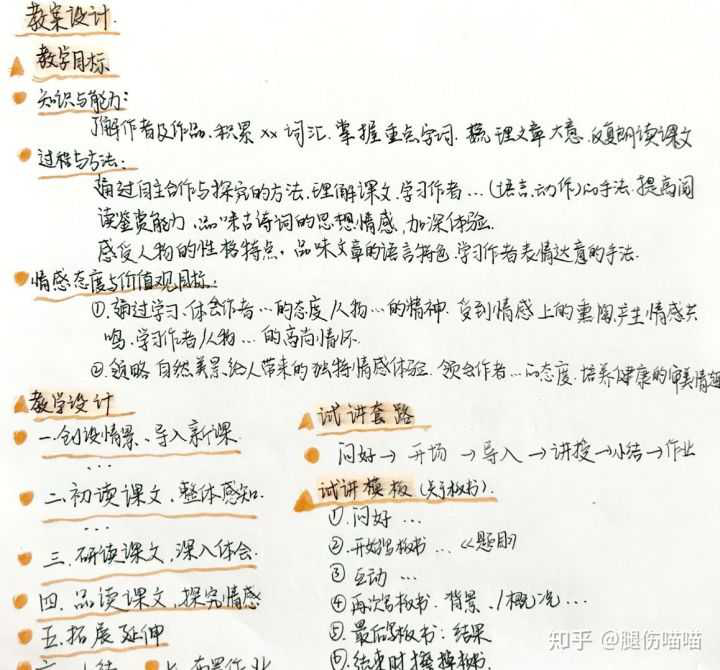 教案设计.
教学目标
知识与能力:
了解作者及作品.积累xx词汇.掌握重点字词.梳理文章大意.反复朗读课文
过程与方法:
通过自主合作与探究的方法.理解课文.学习作者...(语言.动作)的手法.提高阅
读鉴赏能力.品味古诗词的思想情感,加深体验.
感受人物的性格特点.品味文章的语言特色.学习作者表情达意的手法.
情感态度与价值观目标:
①.通过学习、体会作者...的态度/人物...的精神.受到情感上的熏陶,产生情感共
鸣.学习作者/人物...的高尚情怀.
②.领略自然美景给人带来的独特情感体验.领会作者...的态度.培养健康的审美情趣
教学设计
一.创设情景、导入新课.
...
二.初读课文,整体感知.
...
三.研读课文,深入体会.
四.品读课文,探究情感
五.拓展延伸
六.小结 七.布置作业
试讲套路
问好→开场→导入→讲授→小结→作业
试讲模板(关于板书).
①.问好...
②.开始写板书...《题目》
③互动...
④再次写板书.背景/概况...
⑤.最后写板书:结果
⑥.结束时擦掉板书.
知乎 @腿伤喵喵